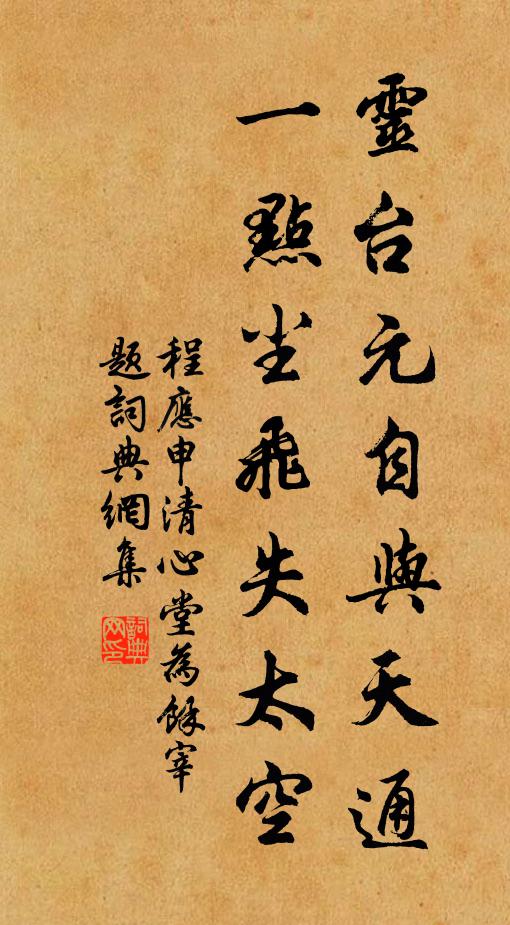 靈台元自與天通
一點尘飛失太空
程應申清心堂為餘宰
題詞典網集
詞典網印